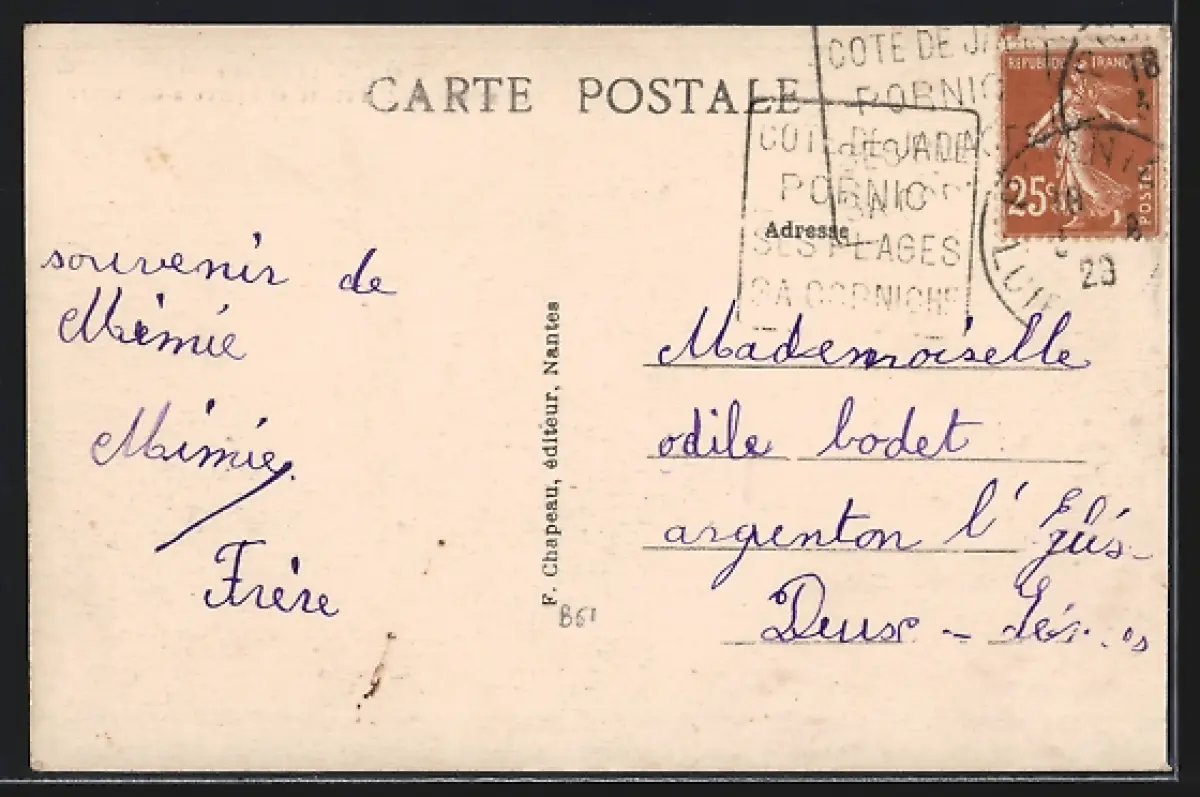 CARTE POSTALE
COTE DE JADE
PORNIC
COTE DE JADE
PORNIC
SES PLAGES
SA CORNICHE
REPUBLIQUE FRANÇAISE
25c
POSTES
18
8
29
Adresse
souvenir de
Mimie
Mimie
Frère
F. Chapeau, éditeur, Nantes
B61
Mademoiselle
odile bodet
argenton l'
Deux -